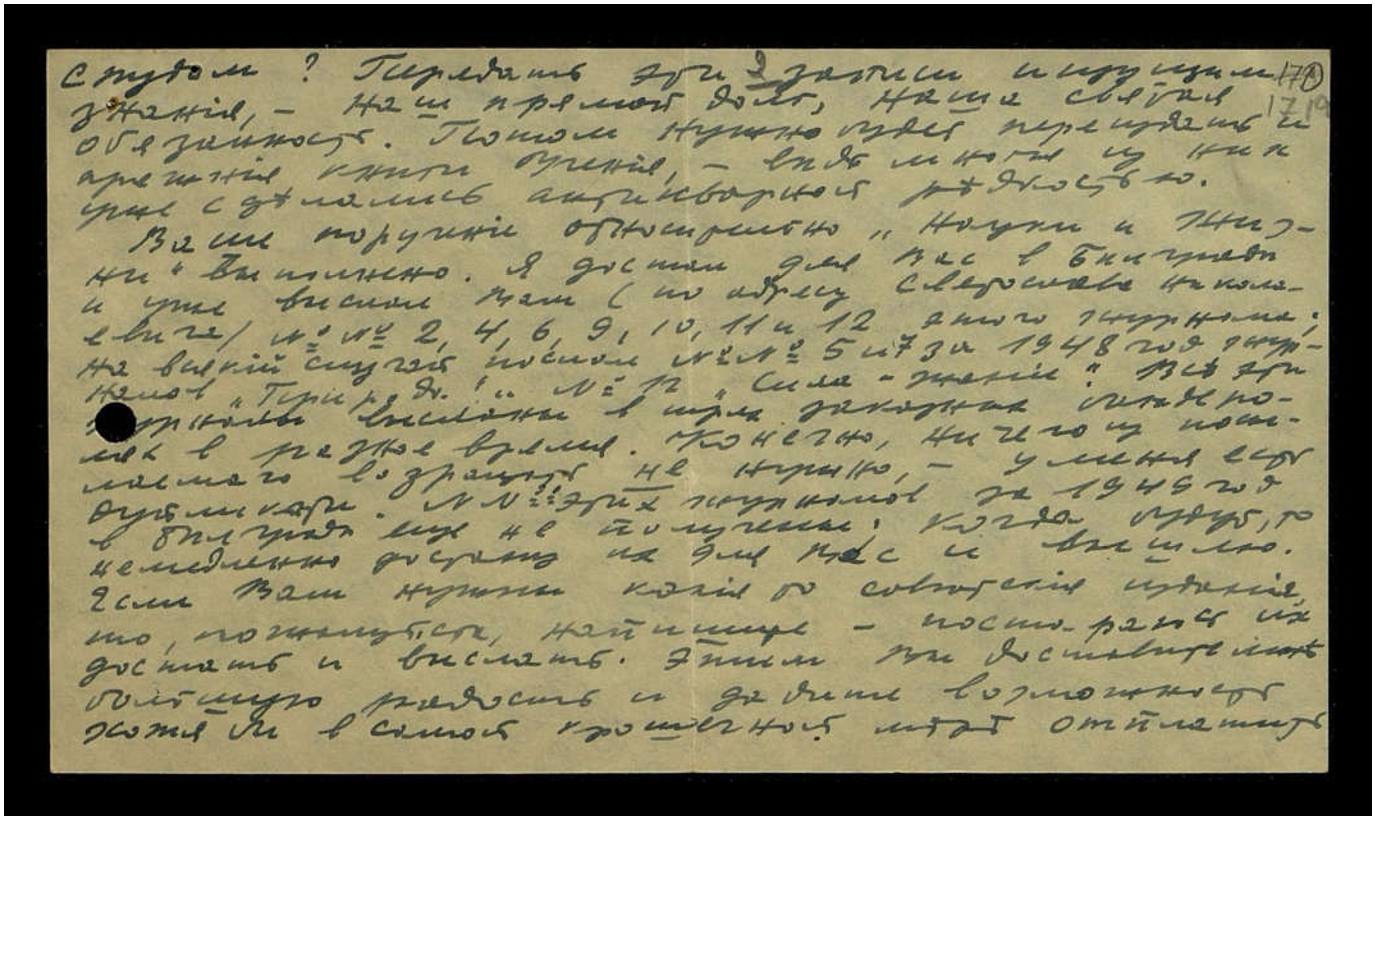 спудом? Передать эти 2 записи ищущим
знанія, – наш прямой долг, наша святая
обязанность. Потом нужно будет переиздать и
прежнія книги Ученія, – ведь многія из них
уже сдѣлались антикварной рѣдкостью.
Ваше порученіе относительно „Науки и Жиз-
ни" выполнено. Я достал для Вас в Бѣлградѣ
и уже выслал Вам (по адресу Святослава Никола-
евича) №№ 2, 4, 6, 9, 10, 11 и 12 этого журнала;
на всякій случай послал №№ 5 и 7 за 1948 год жур-
налов „Природа" и № 12 „Сила – знаніе". Всѣ эти
журналы высланы в трех заказных бандеро-
лях в разное время. Конечно, ничего из посы-
лаемаго возвращать не нужно, – у меня есть
дубликаты. №№ этих журналов за 1949 год
в Бѣлградѣ еще не получены; когда будут, то
немедленно достану их для Вас и вышлю.
Если Вам нужны какія то совѣтскія изданія,
то, пожалуйста, напишите – постараюсь их
достать и выслать. Этим Вы доставите мнѣ
большую радость и дадите возможность
хотя бы в самой крошечной мѣрѣ отплатить